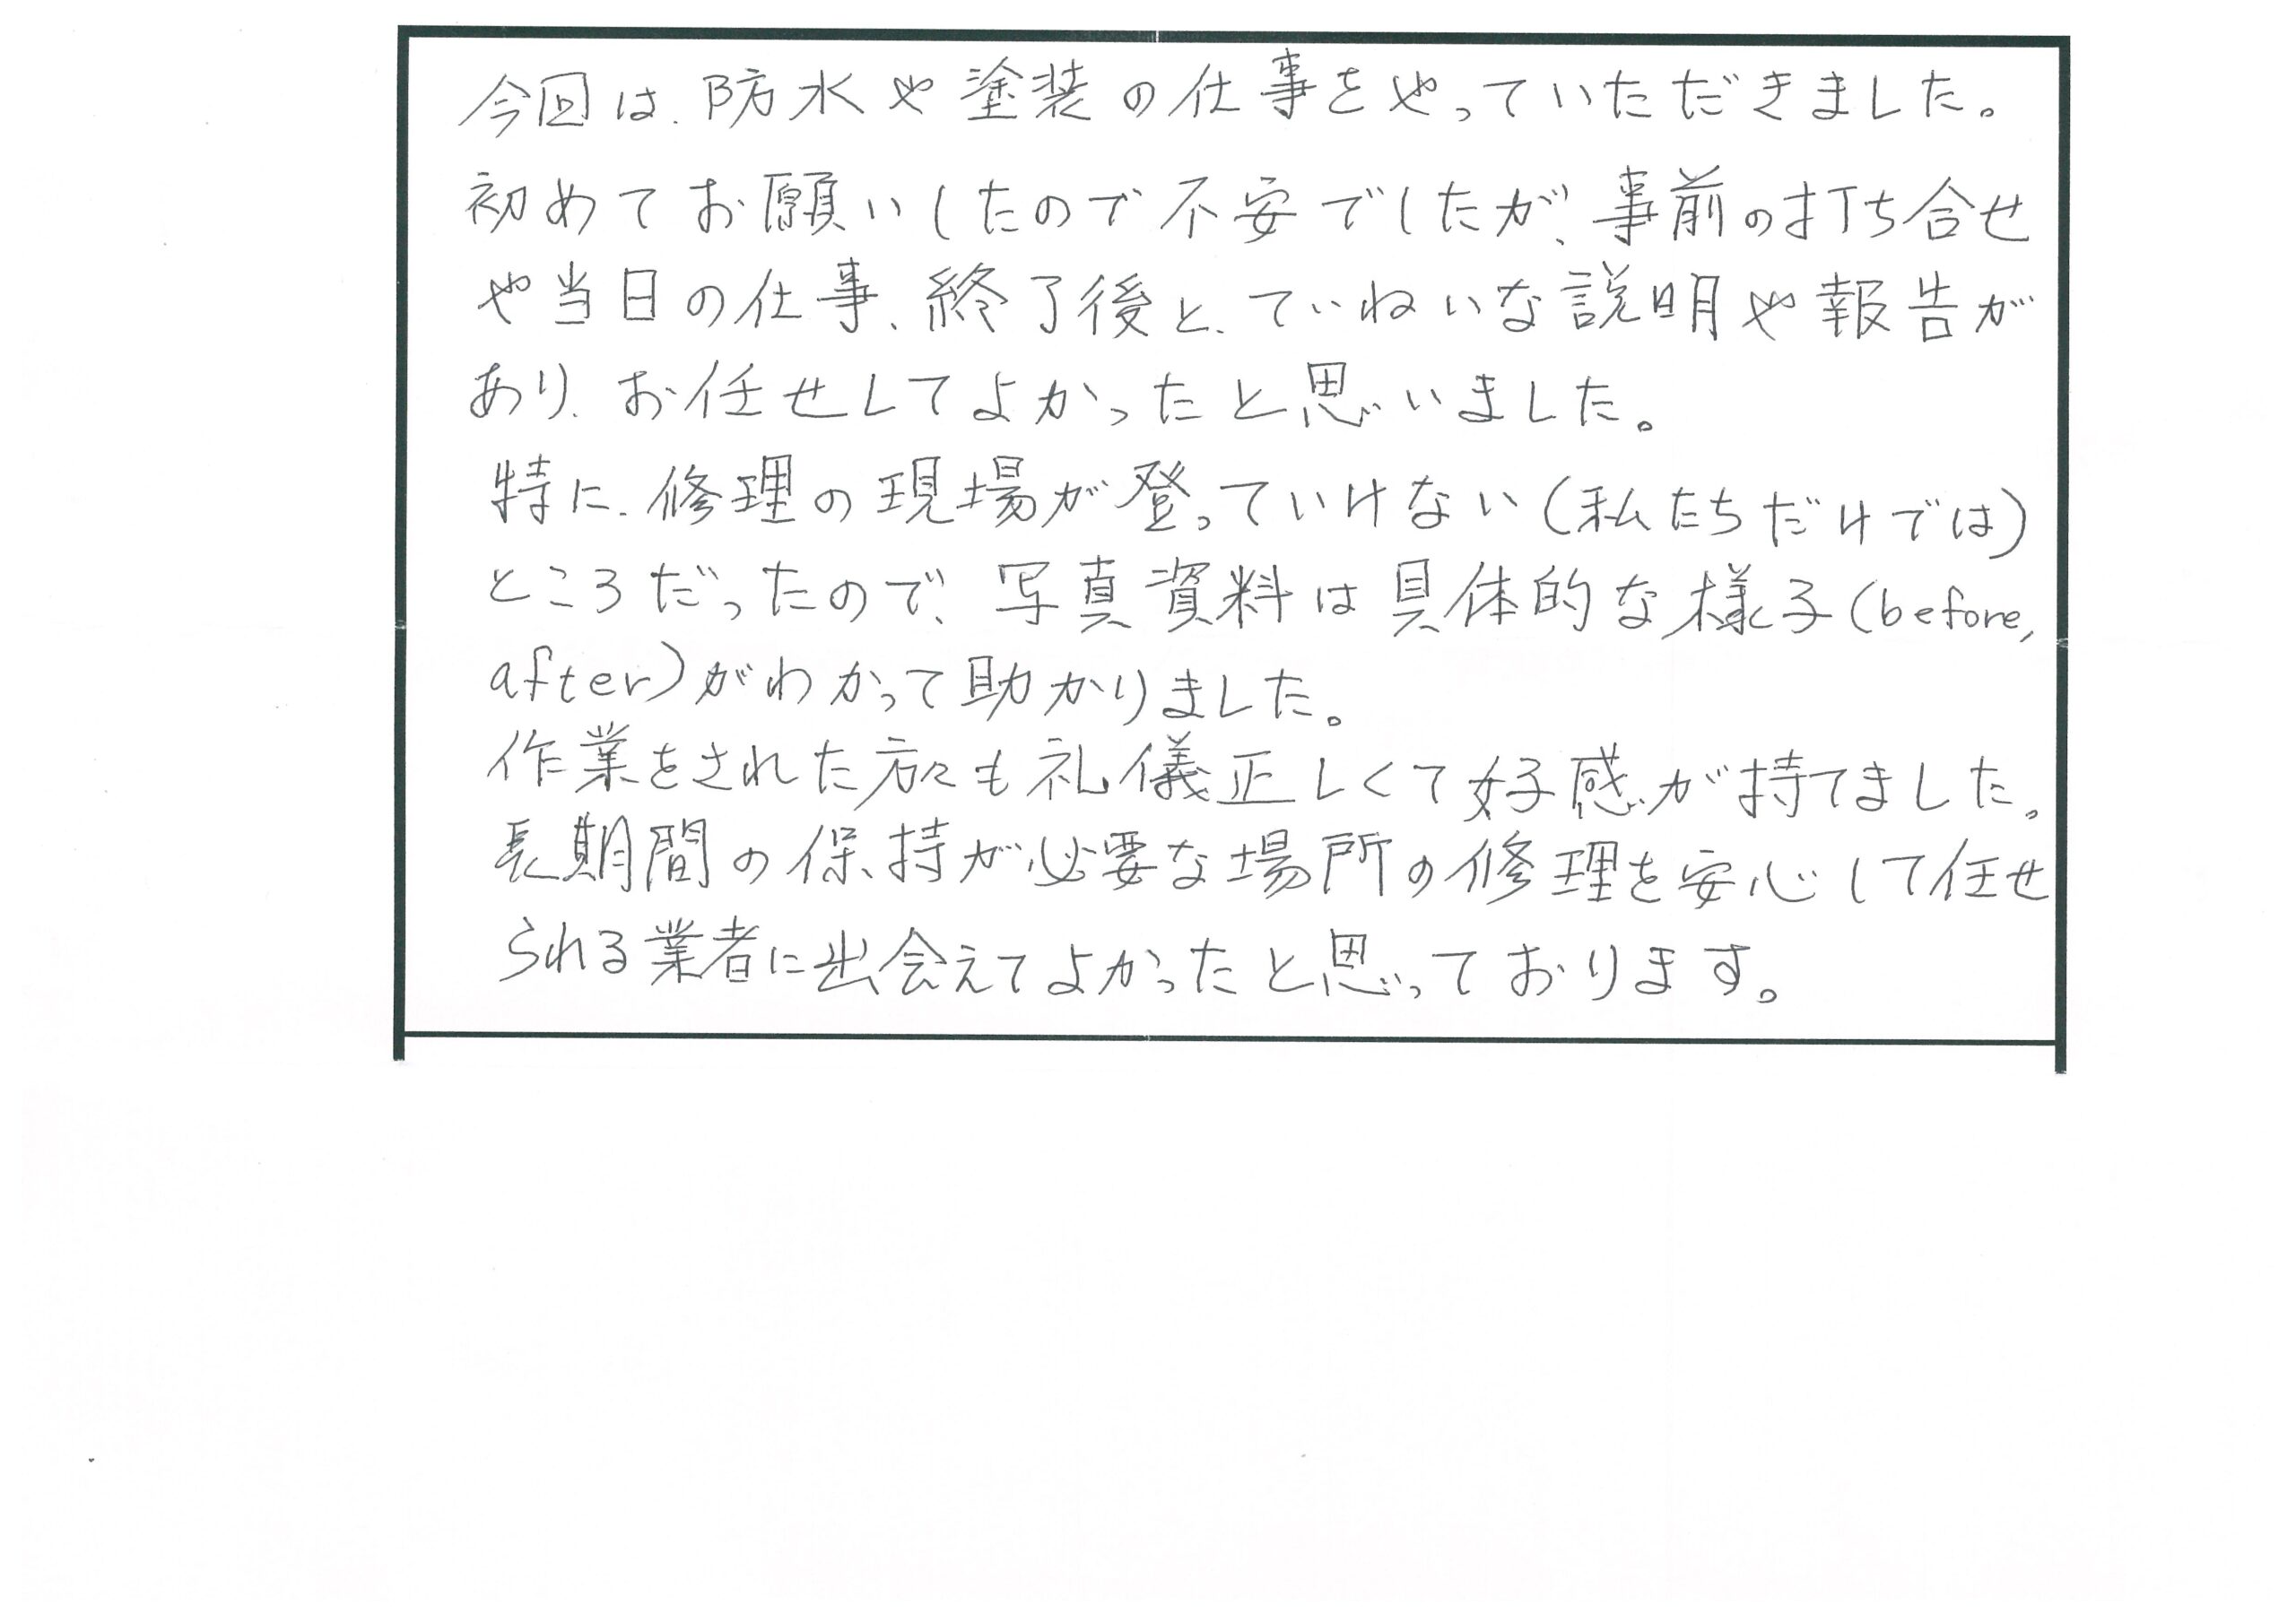 今回は、防水や塗装の仕事をやっていただきました。
初めてお願いしたので不安でしたが、事前の打ち合せ
や当日の仕事、終了後と、ていねいな説明や報告が
あり、お任せしてよかったと思いました。
特に、修理の現場が登っていけない(私たちだけでは)
ところだったので、写真資料は具体的な様子(before,
after)がわかって助かりました。
作業をされた方々も礼儀正しくて好感が持てました。
長期間の保持が必要な場所の修理を安心して任せ
られる業者に出会えてよかったと思っております。